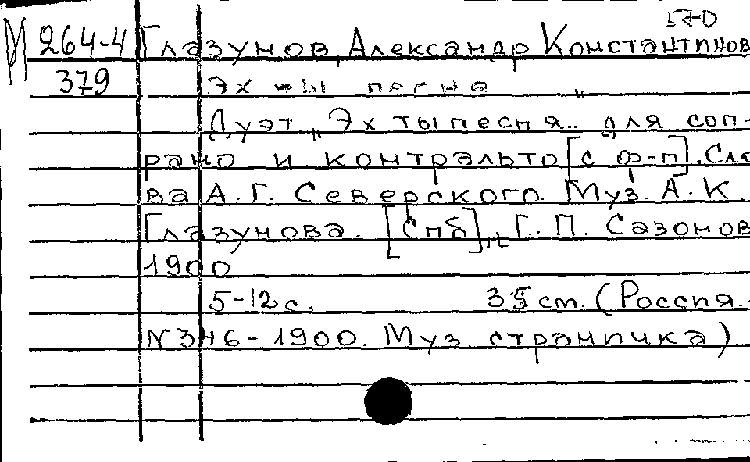 М 264-4 Глазунов, Александр Константинов
379 Эх ты песня
Дуэт „Эх ты песня.. для соп-
рано и контральто [с ф-п]. Сло
ва А. Г. Северского. Муз. А. К.
Глазунова. [Спб], Г. П. Сазонов
1900
5-12 с. 35 cm. (Россия.
N 346-1900. Муз. страничка)